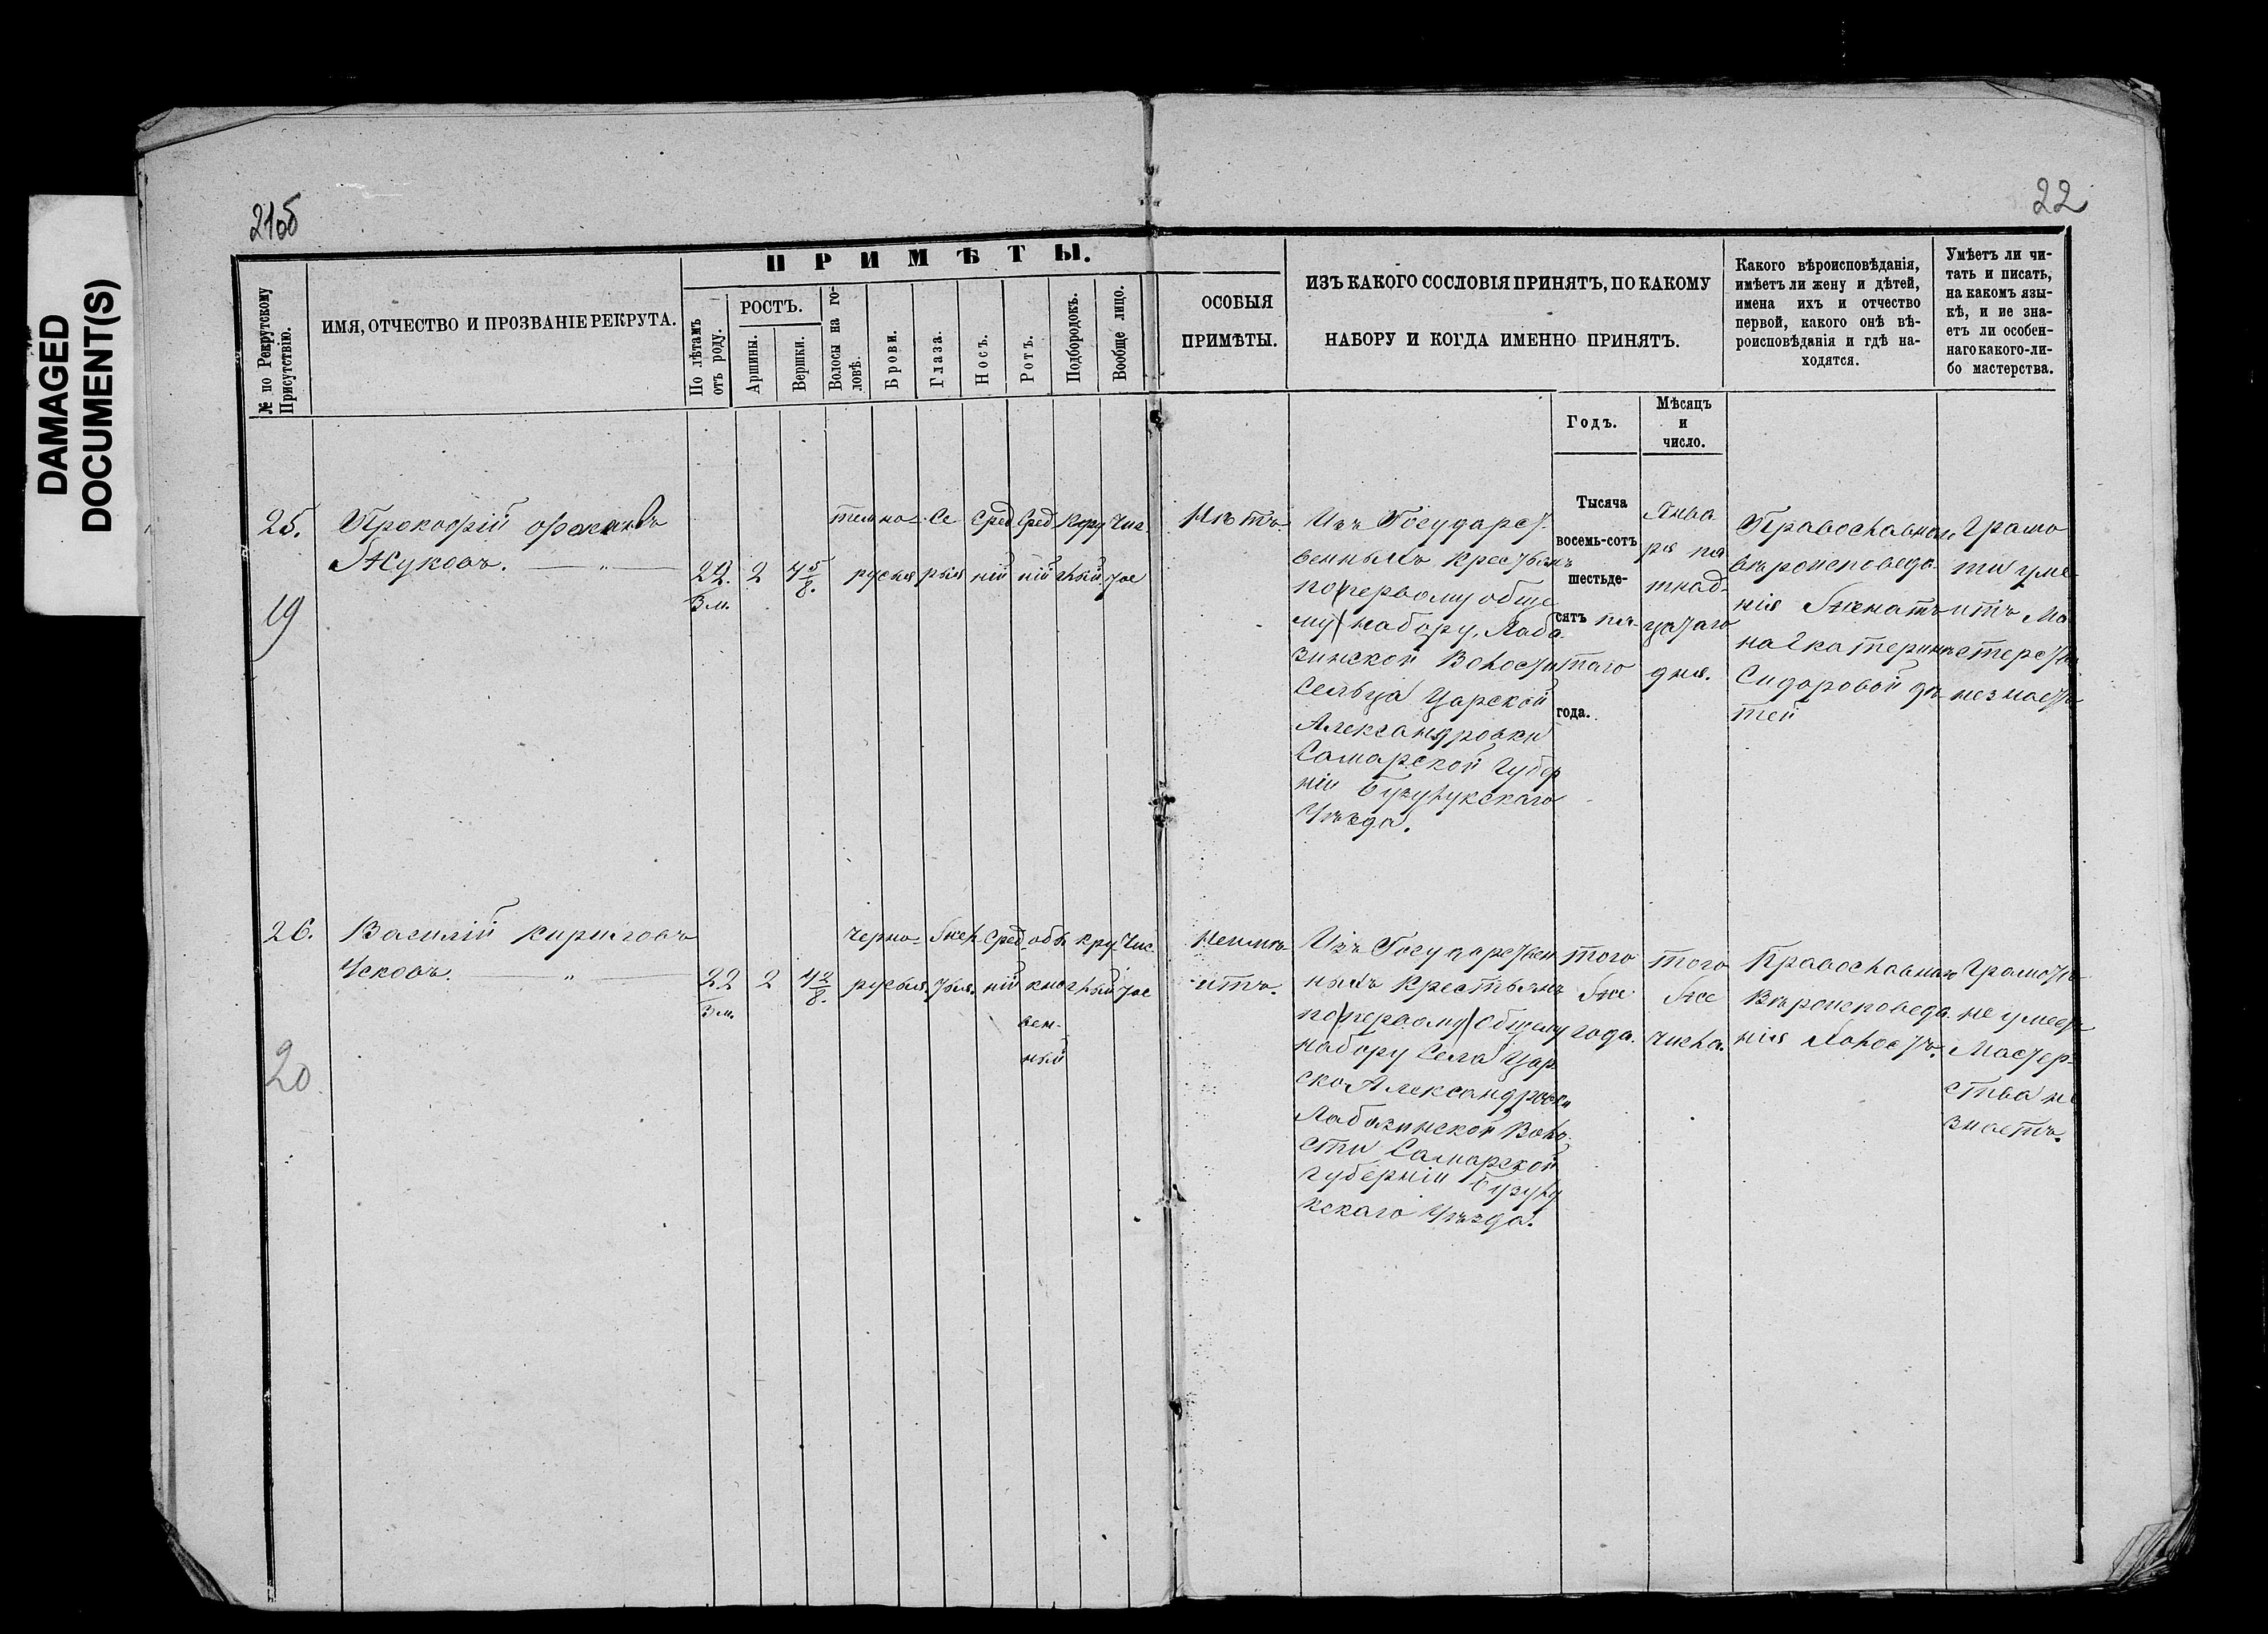 DAMAGED
DOCUMENT(S)
21об
22
ПРИМѢТЫ.
№ по Рекрутскому Присутствію.
ИМЯ, ОТЧЕСТВО И ПРОЗВАНІЕ РЕКРУТА.
По лѣтамъ отъ роду.
РОСТЪ.
Аршины.
Вершки.
Волосы на головѣ.
Брови.
Глаза.
Носъ.
Ротъ.
Подбородокъ.
Вообще лицо.
ОСОБЫЯ
ПРИМѢТЫ.
ИЗЪ КАКОГО СОСЛОВІЯ ПРИНЯТЪ, ПО КАКОМУ
НАБОРУ И КОГДА ИМЕННО ПРИНЯТЪ.
Годъ.
Мѣсяцъ
и
число.
Какого вѣроисповѣданія,
имѣетъ ли жену и дѣтей,
имена ихъ и отчество
первой, какого онѣ вѣ-
роисповѣданія и гдѣ на-
ходятся.
Умѣетъ ли чи-
тать и писать,
на какомъ язы-
кѣ, и не зна-
етъ ли особен-
наго какого-ли-
бо мастерства.
25.
Прокофій
Жуковъ.
19
22.
3 м.
2
4 5/8.
темно- Се Сред Сред Кру Чис
русыя рыя ній ній глый тое
Нѣтъ
Изъ Государст-
венныхъ Крестьянъ
по первому обще
му набору, Лаба
зинской Волости
Сельца Царской
Александровки
Самарской Губер
ніи Бузулукскаго
Уѣзда.
Тысяча
восемь-сотъ
шестьде-
сятъ пя-
таго
года.
Янва
ря пя
тнад-
цатаго
дня.
Православнаго
вѣроисповеда-
нія Женатъ
на Екатеринѣ
Сидоровой дѣ
тей
Грамо
ти уме
итъ Ма
стерства
незнаетъ
26.
Василій Кириловъ
Усковъ.
20
22
3 м.
2
4 2/8.
Черно- Жел Сред. обы кру Чис
русыя. тыя. ній кно глый тое
вен-
ный
Неимѣ
итъ.
Изъ Государствен
ныхъ Крестьянъ
по первому Общему
набору Села Цар
ско Александровки
Лабазинской Воло
сти Самарской
губерніи Бузулу
кскаго Уѣзда.
того
Же
года.
того
Же
числа.
Православнаго
Вѣроисповеда
нія Холостъ.
Грамотѣ
не умеетъ
Мастер-
ства не
знаетъ.